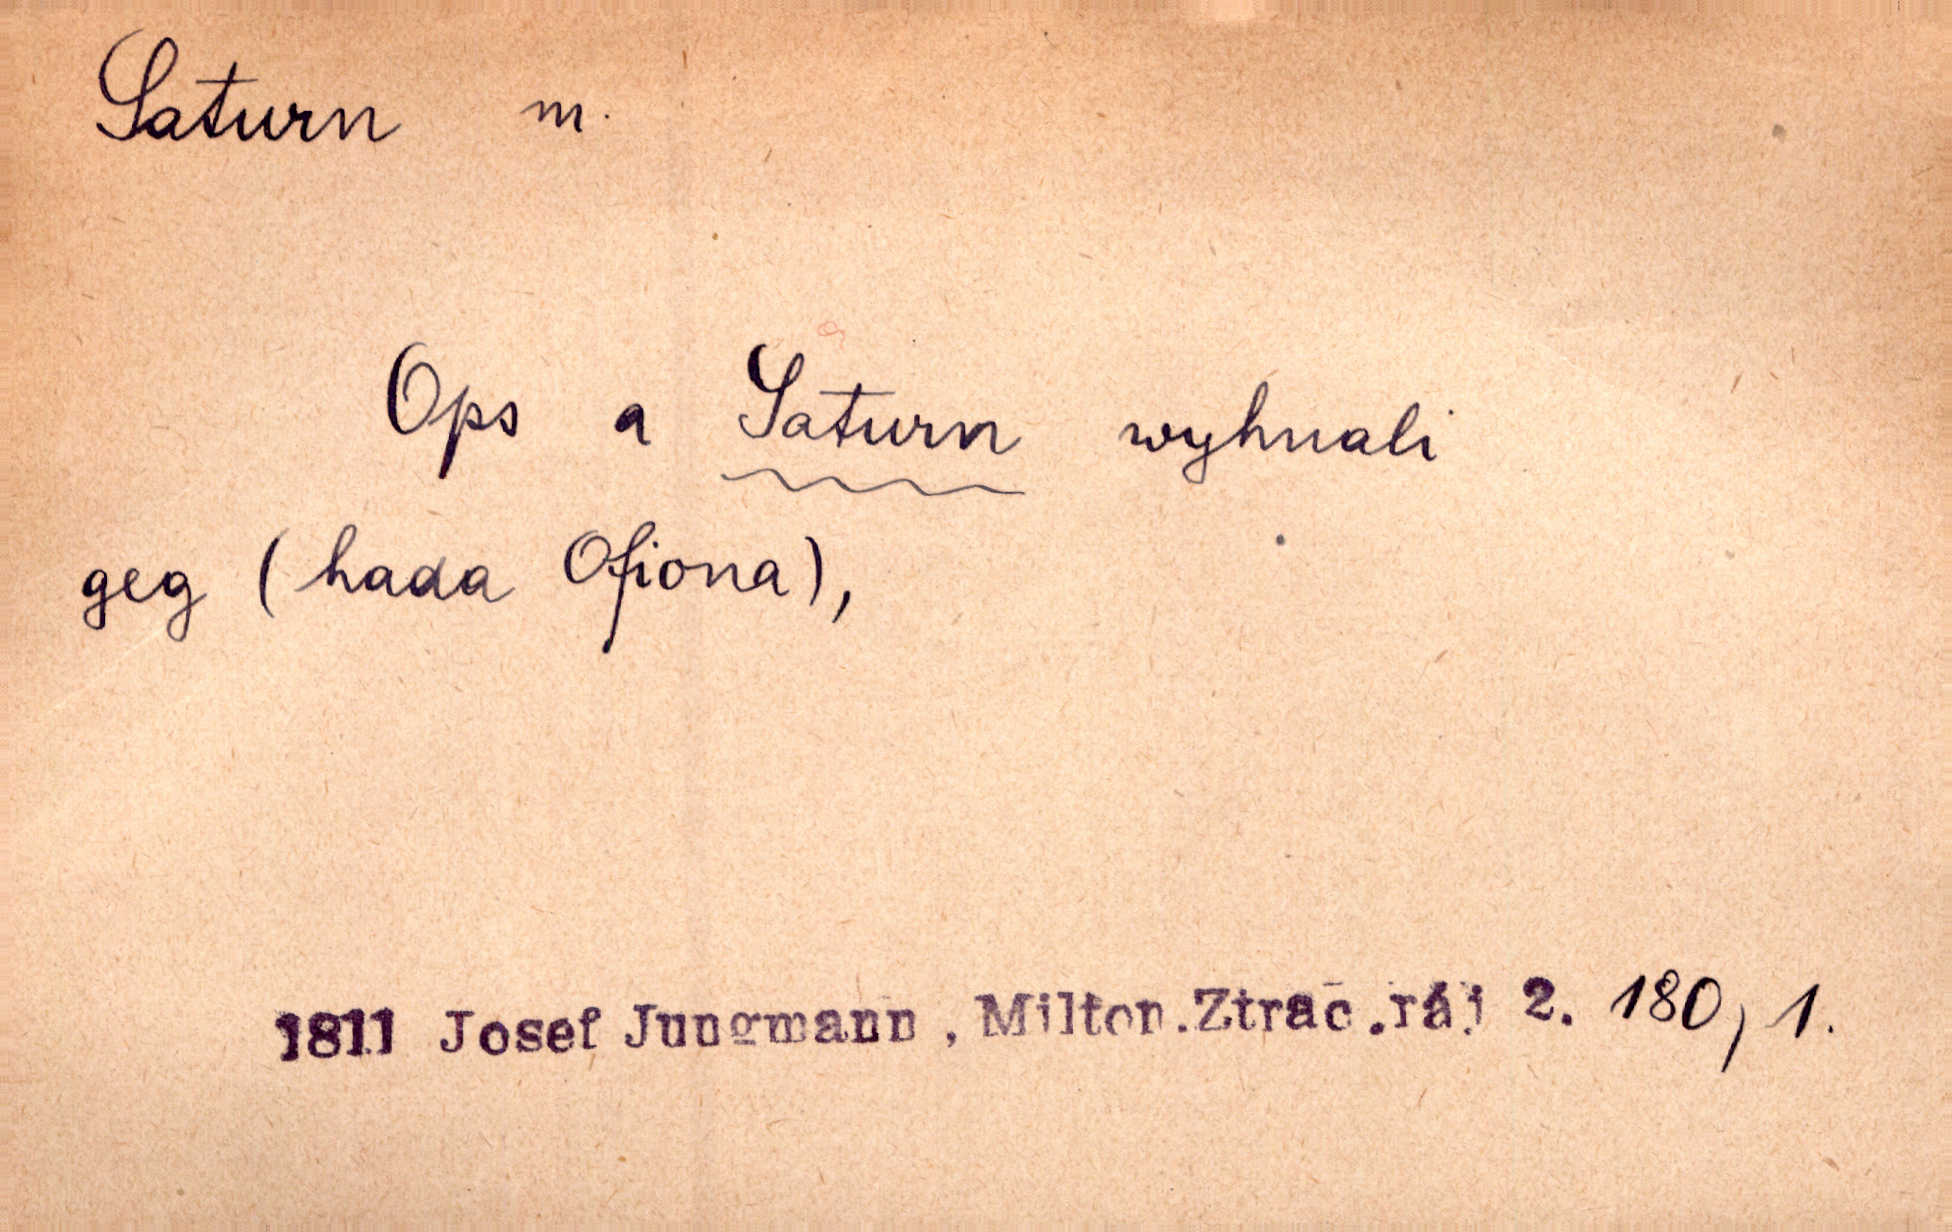 Saturn m.
Ops a Saturn wyhnali
geg (hada Ofiona),
1811 Josef Jungmann, Milton.Ztrac.ráj 2. 180, 1.